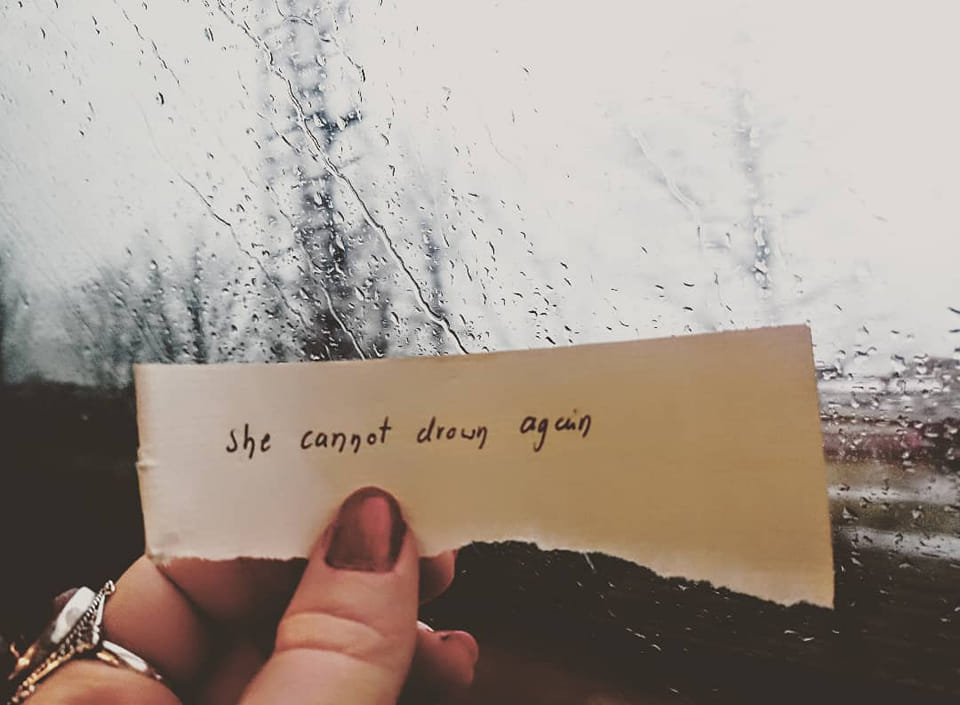 she cannot drown again